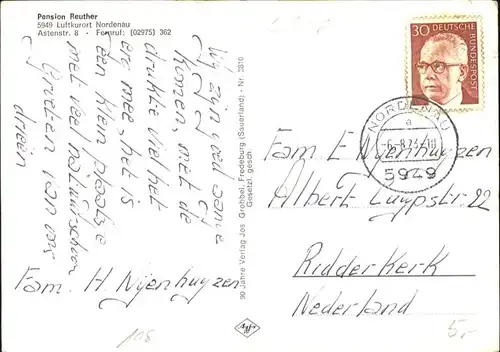 Pension Reuther
5949 Luftkurort Nordenau
Astenstr. 8 - Fernruf: (02975) 362
Wij zijn goed
komen, met de
drukte viel het
erg mee, het is
een klein plaatsje
met veel natuurschoon
Groeten van ons
drieën
Fam. H Nijenhuyzen
90 Jahre Verlag Jos. Grobbel, Fredeburg (Sauerland) - Nr. 3810
Gesetzl. gesch.
Agfa
30
DEUTSCHE BUNDESPOST
NORDENAU
a
-6.-8.73-18
5949
Fam E Nijenhuyzen
Albert Cuypstr. 22
Ridderkerk
Nederland
5,-